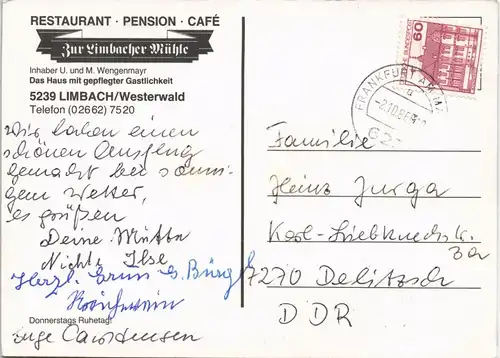 RESTAURANT · PENSION · CAFÉ
Zur Limbacher Mühle
Inhaber U. und M. Wengenmayr
Das Haus mit gepflegter Gastlichkeit
5239 LIMBACH/Westerwald
Telefon (02662) 7520
Wir haben einen
schönen Ausflug
gemacht bei sonni-
gem Wetter,
es grüßen
Deine Mutti
Nichte Ilse
Herzl. Grüß
Donnerstags Ruhetag!
Inge Carstensen
60
DEUTSCHE BUNDESPOST
FRANKFURT AM MA
Familie
Heinz Jurga
Karl-Liebknecht-
7270 Delitzsch
DDR